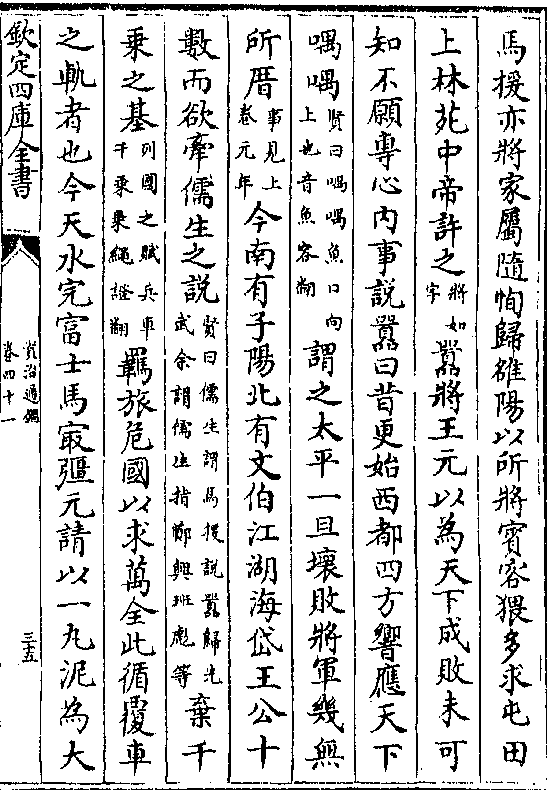 馬援亦將家屬隨恂歸雒陽以所將賓客猥多求屯田
上林苑中帝許之將如字囂將王元以為天下成敗未可
知不願專心內事說囂曰昔更始西都四方響應天下
喁喁賢曰喁喁魚口向上也音魚容翻謂之太平一旦壞敗將軍幾無
所厝事見上卷元年今南有子陽北有文伯江湖海岱王公十
數而欲牽儒生之說賢曰儒生謂馬援說囂歸光武余謂儒生指鄭興班彪等棄千
乘之基列國之賦兵車千乘乗繩證翻羈旅危國以求萬全此循覆車
之軌者也今天水完富士馬最彊元請以一丸泥為大
欽定四庫全書
資治通鑑
卷四十一
三五